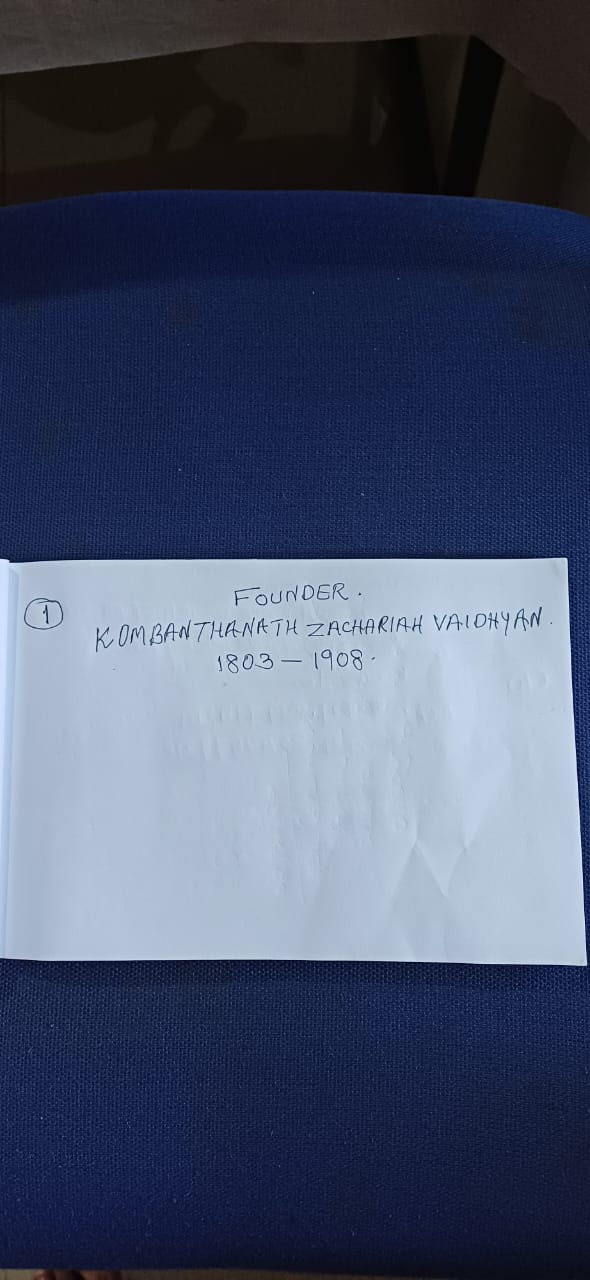 1
FOUNDER.
KOMBANTHANATH ZACHARIAH VAIDHYAN.
1803 – 1908.